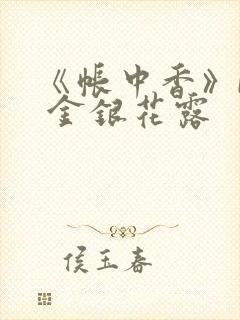 《帐中香》
金银花露
侯玉春